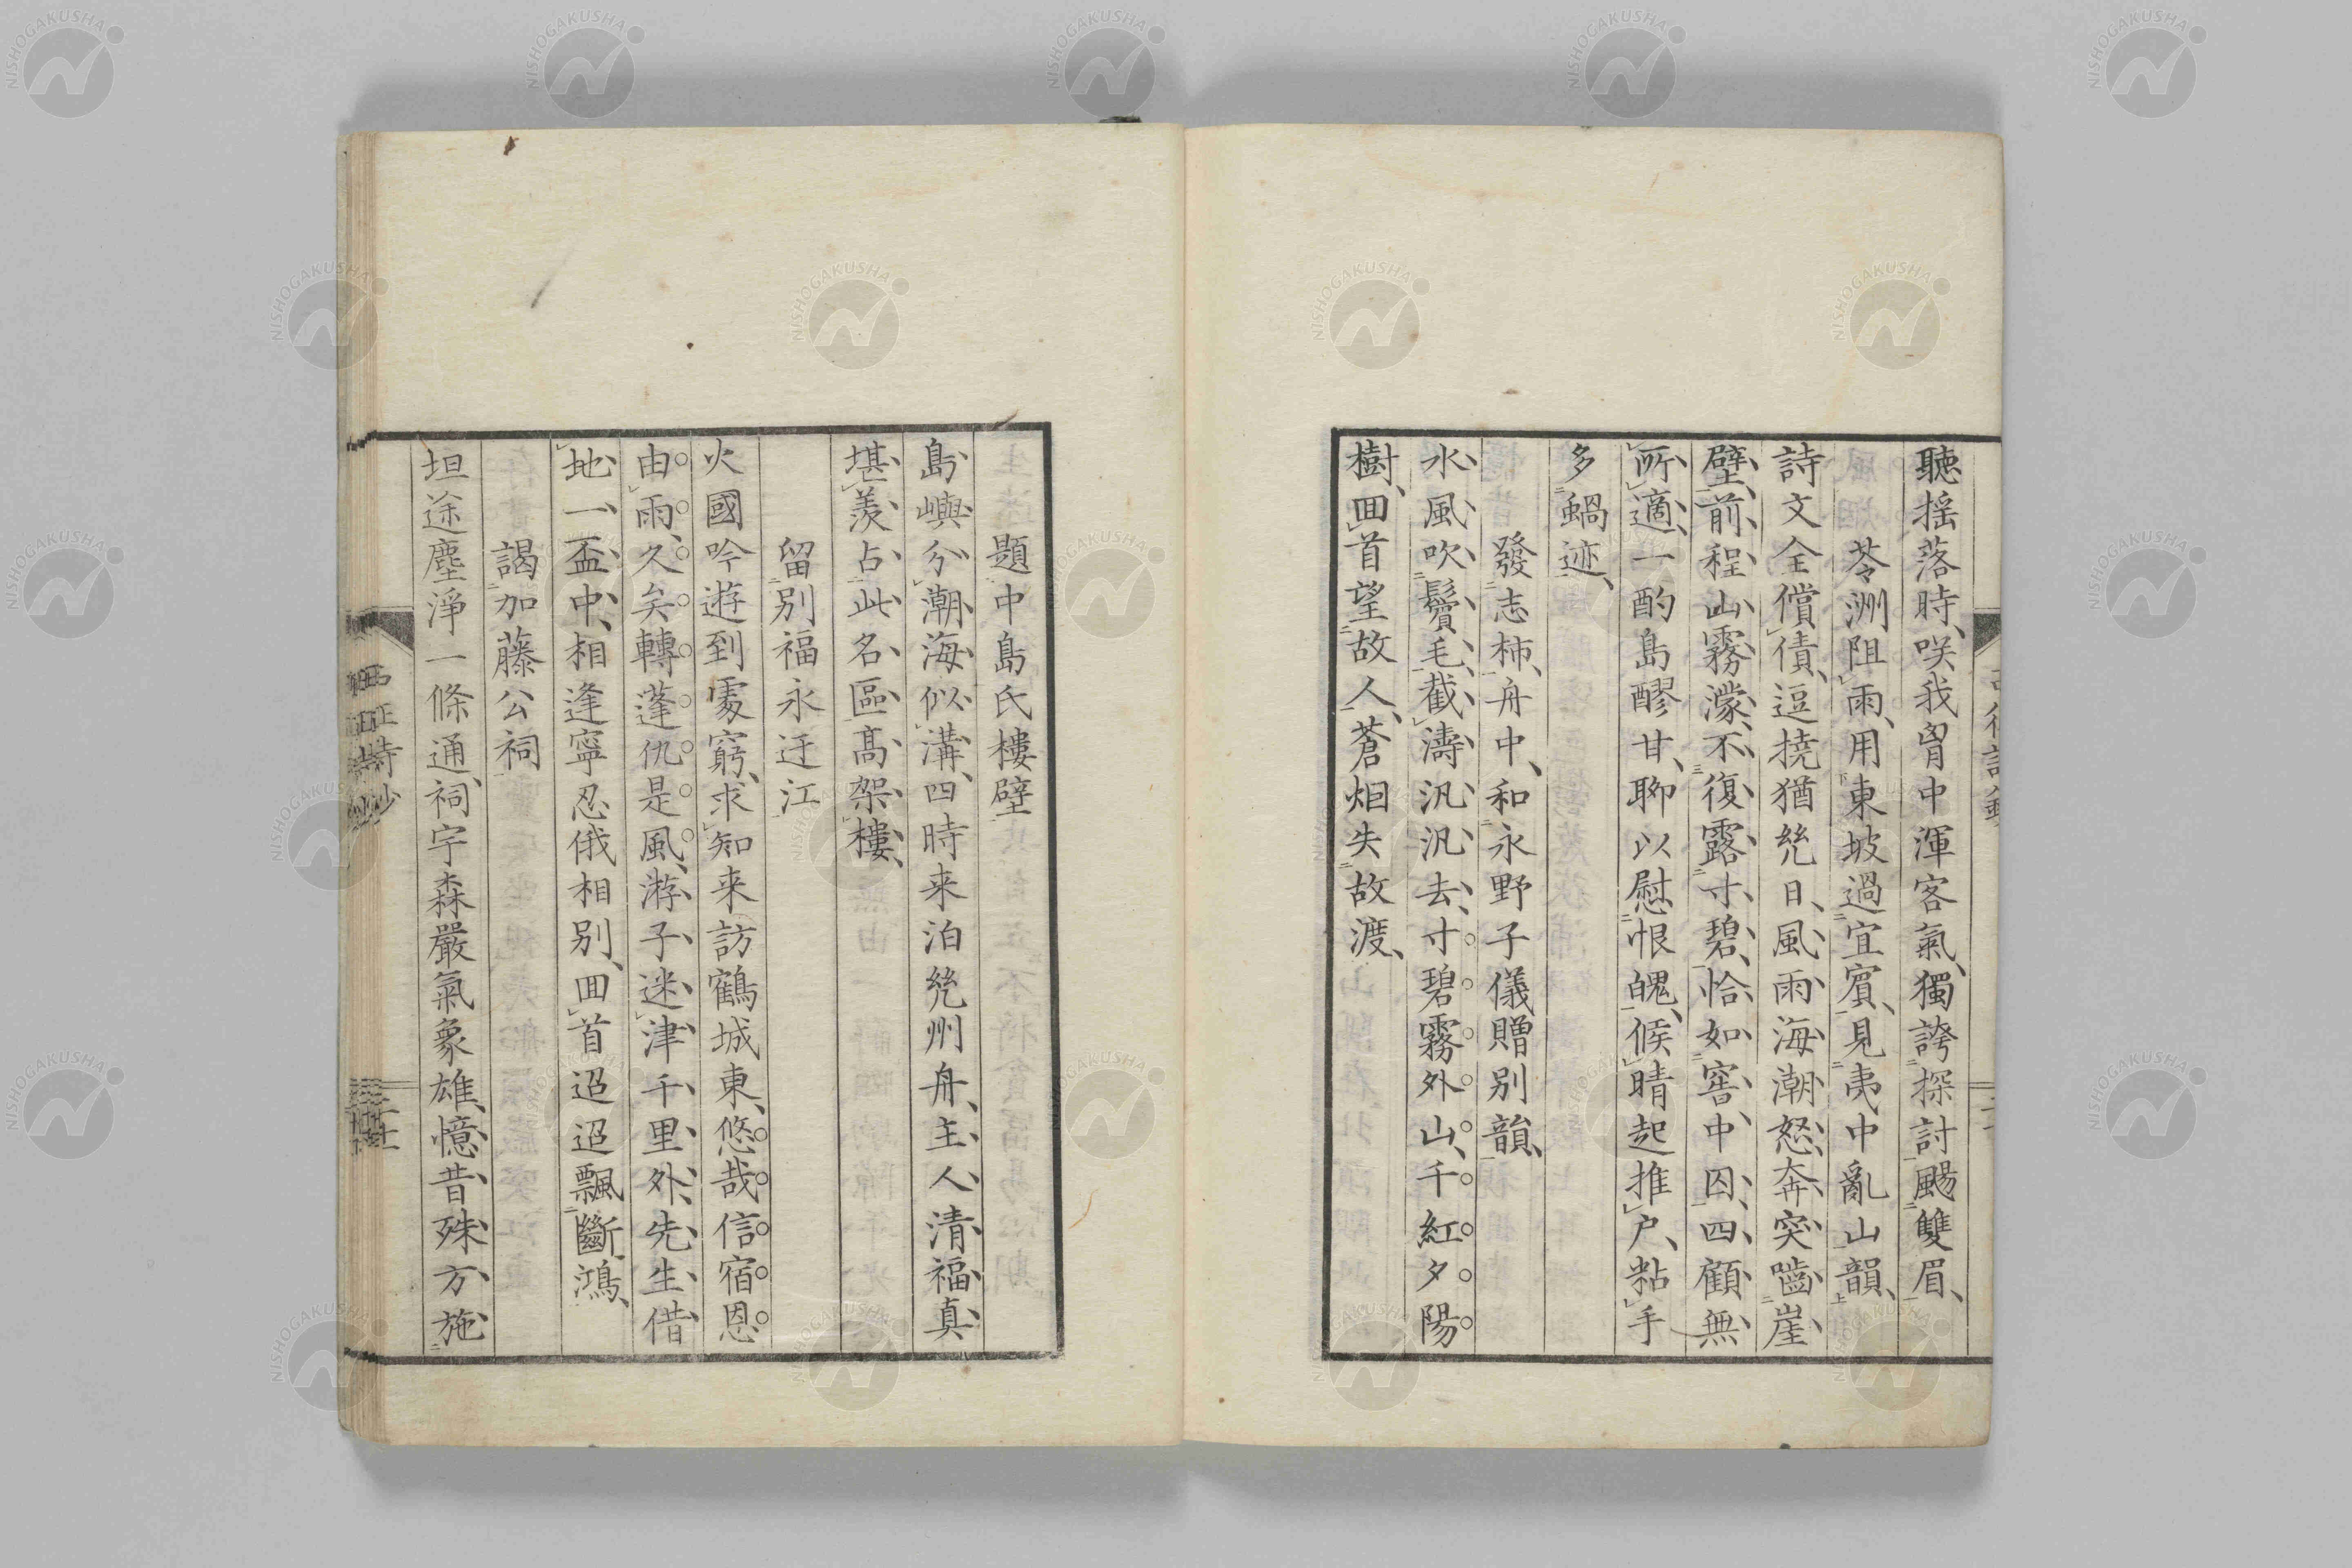 聽揺落時、咲我胷中渾客氣、獨誇探討颺雙眉、
苓洲阻雨、用東坡過宜賓、見夷中亂山韻、
詩文全償債、逗撓猶㡬日、風雨海潮怒、奔突嚙崖
壁、前程山霧濛、不復露寸碧、恰如窖中囚、四顧無
所適、一酌島醪甘、聊以慰恨醜、候晴起推户、粘手
多蝸迹、
發志柿、舟中、和永野子儀贈別韻、
水風吹鬢毛、截濤汎汎去、寸碧霧外山、千紅夕陽
樹、回首望故人、蒼烟失故渡、
題中島氏樓壁
島嶼分潮海似溝、四時来泊㡬州舟、主人清福真
堪羨、占此名區高架樓、
留別福永迂江
火國吟遊到處窮、求知来訪鶴城東、悠哉信宿恩
由雨、久矣轉蓬仇是風、游子迷津千里外、先生借
地一盃中、相逢寧忍俄相別、回首迢迢飄斷鴻、
謁加藤公祠
坦途塵淨一條通、祠宇森嚴氣象雄、憶昔殊方施
NISHOGAKUSHA